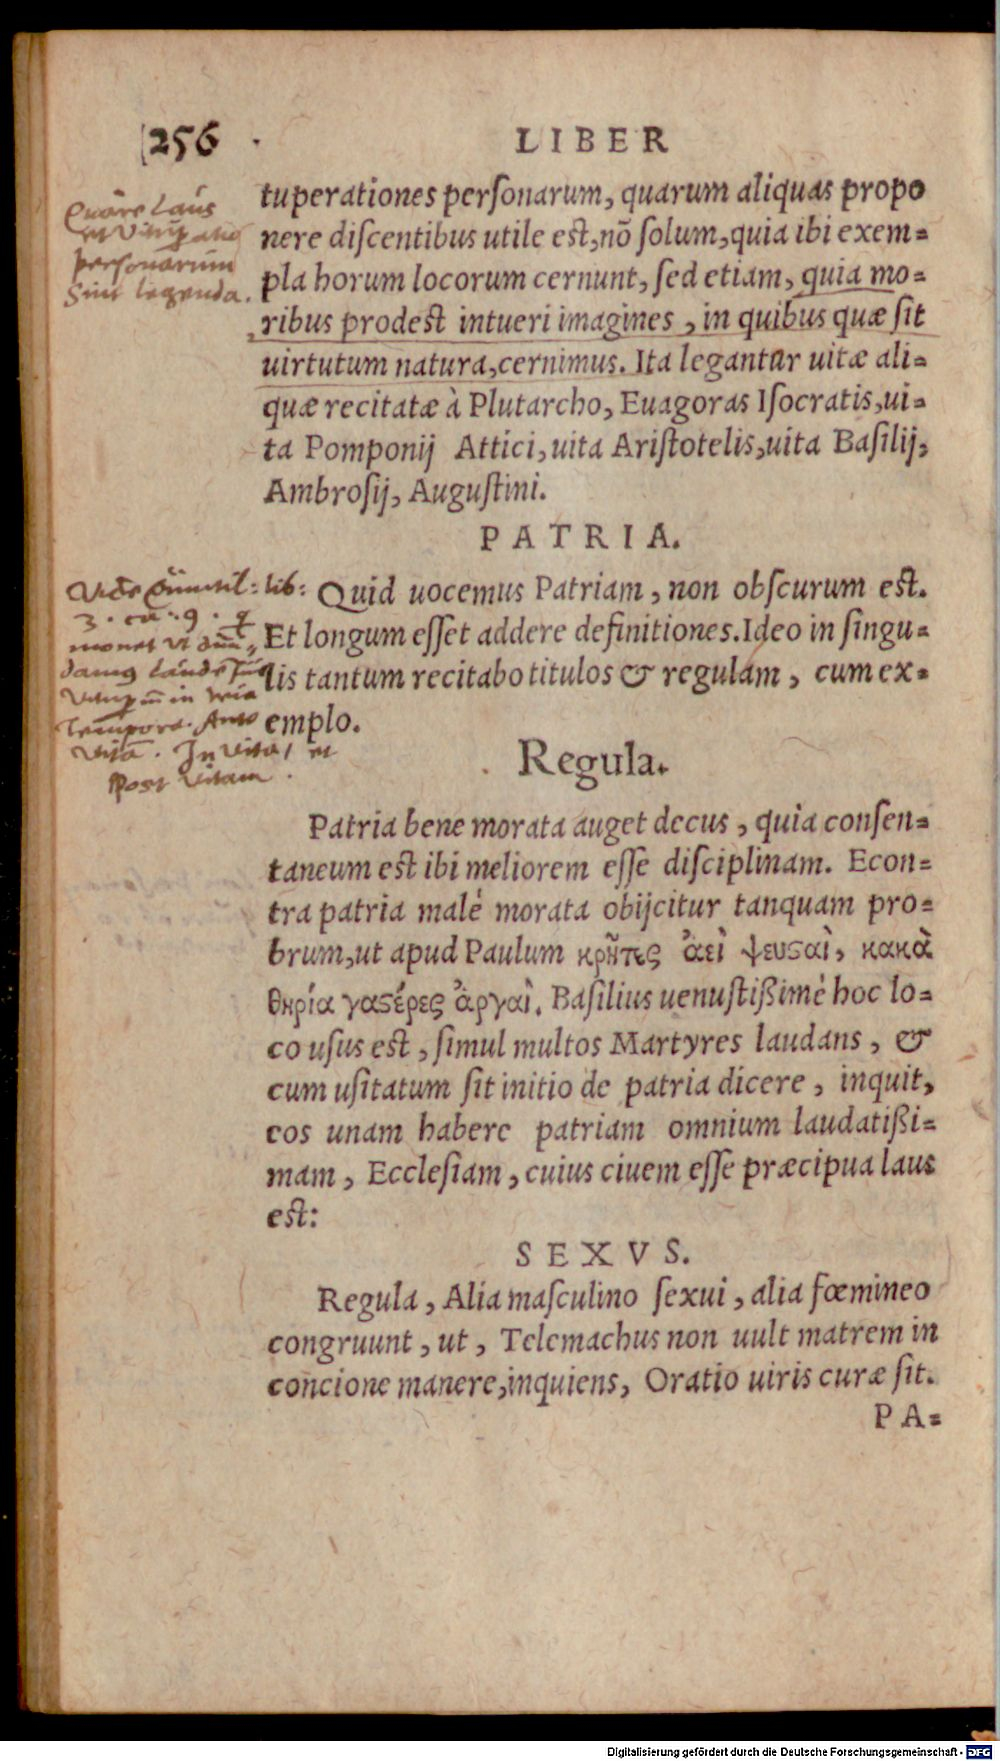 256
LIBER
Quare Laus
et Vitupatio
personarum
Sint legenda.
tuperationes perſonarum, quarum aliquas propo
nere diſcentibus utile eſt,nõ ſolum,quia ibi exem=
pla horum locorum cernunt, ſed etiam, quia mo=
ribus prodeſt intueri imagines, in quibus quæ ſit
uirtutum natura,cernimus. Ita legantur uitæ ali=
quæ recitatæ à Plutarcho, Euagoras Iſocratis,ui=
ta Pomponij Attici,uita Ariſtotelis,uita Baſilij,
Ambroſij, Auguſtini.
PATRIA.
Quid uocemus Patriam, non obſcurum eſt.
Et longum eſſet addere definitiones.Ideo in ſingu=
lis tantum recitabo titulos & regulam, cum ex=
emplo.
Vide lib:
3. 9.
monet ut
Laude
in tria
Tempora. Ante
Vitã. In Vita, et
Post Vitam.
Regula.
Patria bene morata auget decus, quia conſen=
taneum eſt ibi meliorem eſſe diſciplinam. Econ=
tra patria malè morata obijcitur tanquam pro=
brum,ut apud Paulum κρῆτες ἀεὶ ψευϛαὶ, κακὰ
θηρία γαϛέρες ἀργαὶ. Baſilius uenuſtißimè hoc lo=
co uſus eſt, ſimul multos Martyres laudans, &
cum uſitatum ſit initio de patria dicere, inquit,
eos unam habere patriam omnium laudatißi=
mam, Eccleſiam, cuius ciuem eſſe præcipua laus
eſt:
SEXVS.
Regula, Alia maſculino ſexui, alia fœmineo
congruunt, ut, Telemachus non uult matrem in
concione manere,inquiens, Oratio uiris curæ ſit.
PA=
Digitalisierung gefördert durch die Deutsche Forschungsgemeinschaft - DFG